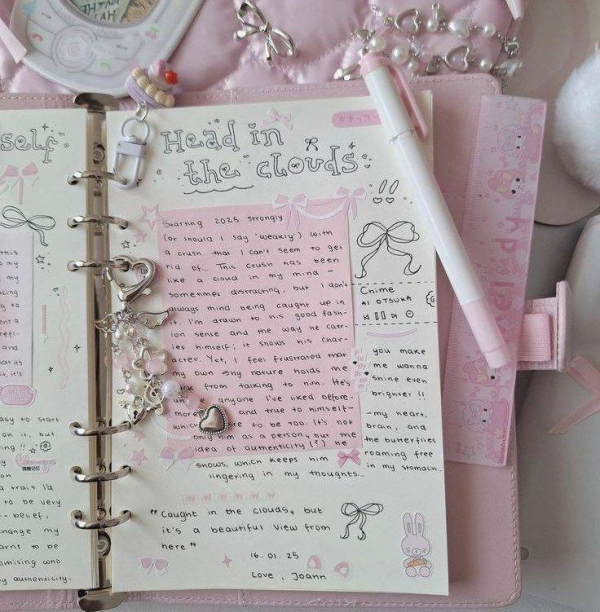 self
Head in
the clouds
Starting 2025 strongly
(or should I say 'weakly') with
a crush that I can't seem to get
rid of... This crush has been
like a cloud in my mind -
sometimes distracting, but I don't
always mind being caught up in
it. I'm drawn to his good fash-
ion sense and the way he car-
ries himself; it shows his char-
acter. Yet, I feel frustrated that
my own shy nature holds me
from talking to him. He's
anyone I've liked before-
more and true to himself-
which to be too. It's not
only him as a person, but the
idea of authenticity (?) he
shows, which keeps him
lingering in my thoughts...
Chime
AI OTSUKA
you make
me wanna
shine even
brighter !!
-my heart,
brain, and
the butterflies
roaming free
in my stomach...
"Caught in the clouds, but
it's a beautiful view from
here"
16.01.25
Love, Joann
easy to start
on it, but
to be very
- belief,
change my
to be
who
my authenticity.